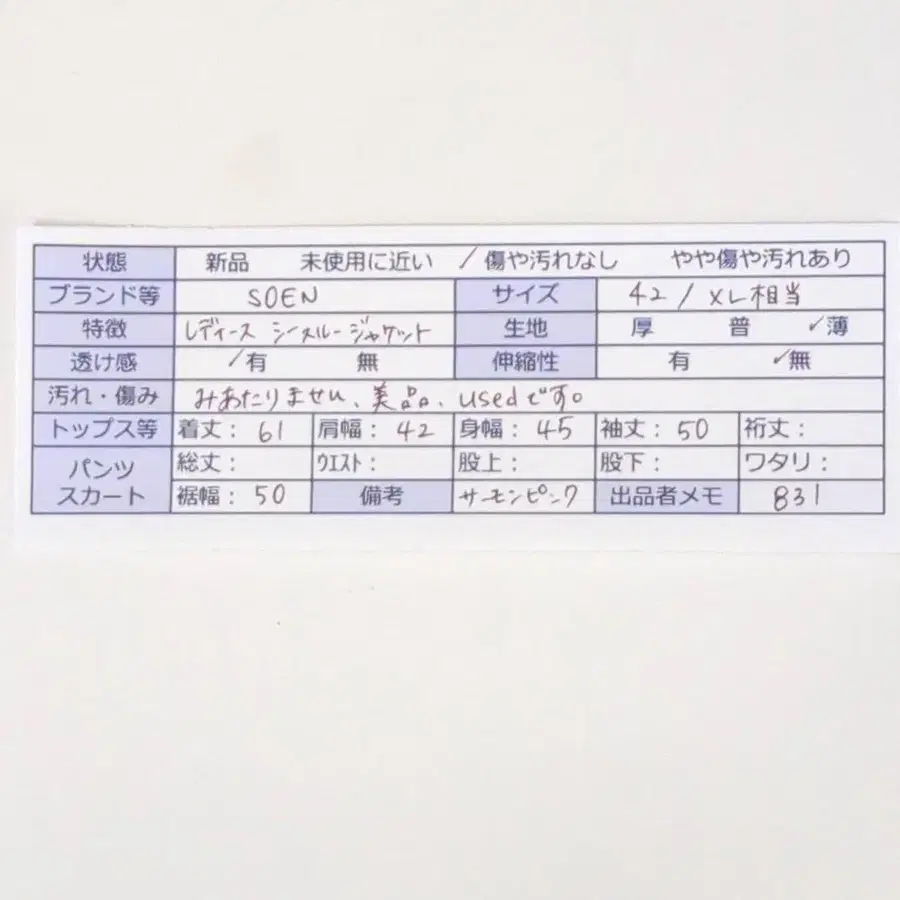 状態 新品 未使用に近い / 傷や汚れなし やや傷や汚れあり
ブランド等 SOEN サイズ 42 / XL相当
特徴 レディース シースルージャケット 生地 厚 普 ✓薄
透け感 /有 無 伸縮性 有 ✓無
汚れ・傷み みあたりません、美品、usedです。
トップス等 着丈: 61 肩幅: 42 身幅: 45 袖丈: 50 裄丈:
パンツ スカート 総丈: ウエスト: 股上: 股下: ワタリ:
裾幅: 50 備考 サーモンピンク 出品者メモ 831